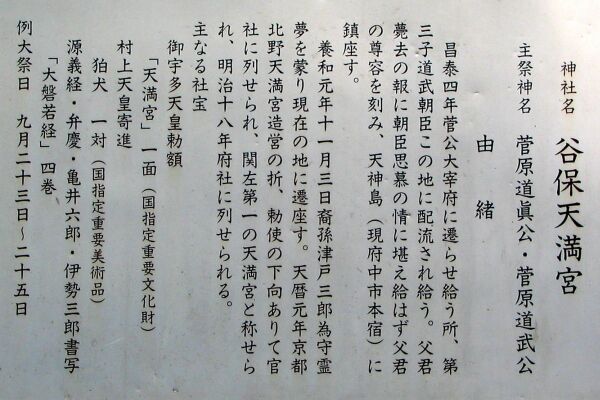 神社名 谷保天満宮
主祭神名 菅原道眞公・菅原道武公
由緒
昌泰四年菅公大宰府に遷らせ給う所、第
三子道武朝臣この地に配流され給う。父君
薨去の報に朝臣思慕の情に堪え給はず父君
の尊容を刻み、天神島（現府中市本宿）に
鎮座す。
養和元年十一月三日裔孫津戸三郎為守霊
夢を蒙り現在の地に遷座す。天暦元年京都
北野天満宮造営の折、勅使の下向ありて官
社に列せられ、関左第一の天満宮と称せら
れ、明治十八年府社に列せられる。
主なる社宝
御宇多天皇勅額
「天満宮」一面（国指定重要文化財）
村上天皇寄進
狛犬 一対（国指定重要美術品）
源義経・弁慶・亀井六郎・伊勢三郎書写
「大磐若経」四巻
例大祭日 九月二十三日～二十五日